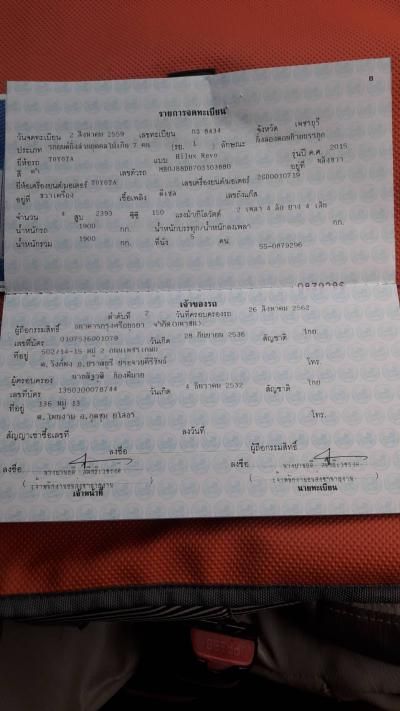 8
รายการจดทะเบียน
วันจดทะเบียน 2 สิงหาคม 2559 เลขทะเบียน 8434 จังหวัด เพชรบุรี
ประเภท รถยนต์นั่งส่วนบุคคลไม่เกิน 7 คน (รย. 1 ) ลักษณะ
ยี่ห้อรถ TOYOTA แบบ Hilux Revo รุ่นปี ค.ศ. 2015
สี เลขตัวรถ อยู่ที่
ยี่ห้อเครื่องยนต์/มอเตอร์ TOYOTA เลขเครื่องยนต์/มอเตอร์ 2GD0010719
อยู่ที่ ขวาเครื่อง เชื้อเพลิง ดีเซล เลขถังแก๊ส
จำนวน 4 สูบ 2393 ซีซี 150 แรงม้า/กิโลวัตต์ 2 เพลา 4 ล้อ ยาง 4 เส้น
น้ำหนักรถ 1900 กก. น้ำหนักบรรทุก/น้ำหนักลงเพลา กก.
น้ำหนักรวม 1900 กก. ที่นั่ง 5 คน
55-0879296
0879296
เจ้าของรถ
ลำดับที่ 2 วันที่ครอบครองรถ 26 สิงหาคม 2562
ผู้ถือกรรมสิทธิ์ ธนาคารกรุงศรีอยุธยา จำกัด(มหาชน)
เลขที่บัตร 0107536001079 วันเกิด 28 กันยายน 2536 สัญชาติ ไทย
ที่อยู่ 502/14-15 หมู่ 2
โทร.
ผู้ครอบครอง
เลขที่บัตร 1350200078744 วันเกิด 4 ธันวาคม 2532 สัญชาติ ไทย
ที่อยู่ 136 หมู่ 13
ต.โพนงาม อ.กุดชุม ยโสธร โทร.
สัญญาเช่าซื้อเลขที่ ลงวันที่
ลงชื่อ ผู้ถือกรรมสิทธิ์
ลงชื่อ ลงชื่อ
เจ้าหน้าที่ นายทะเบียน
PRESS